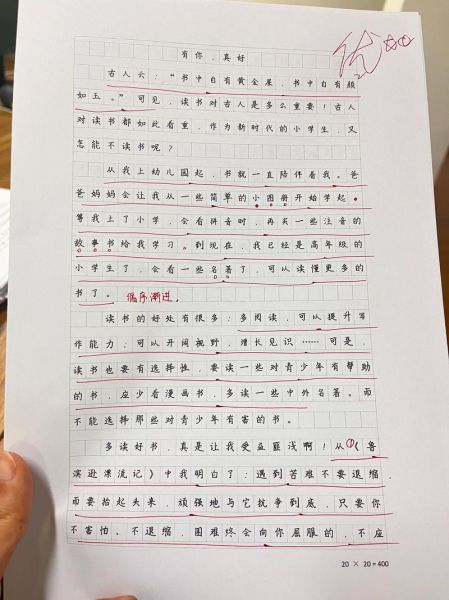 优
有你，真好
古人云：“书中自有黄金屋，书中自有颜
如玉。”可见，读书对古人是多么重要！古人
对读书都如此看重，作为新时代的小学生，又
怎能不读书呢？
从我上幼儿园起，书就一直陪伴着我。爸
爸妈妈会让我从一些简单的小图册开始学起。
等我上了小学，会看拼音时，再买一些注音的
故事书给我学习。到现在，我已经是高年级的
小学生了，会看一些名著了，可以读懂更多的
书了。 循序渐进。
读书的好处有很多：多阅读，可以提升写
作能力；可以开阔视野，增长见识……可是，
读书也要有选择性，要读一些对青少年有帮助
的书，应少看漫画书，多读一些中外名著。而
不能选择那些对青少年有害的书。
多读好书，真是让我受益匪浅啊！从①《鲁
滨逊漂流记》中我明白了：遇到苦难不要退缩，
而要抬起头来，顽强地与它抗争到底，只要你
不害怕、不退缩，困难终会向你屈服的，不应
20 × 20 = 400